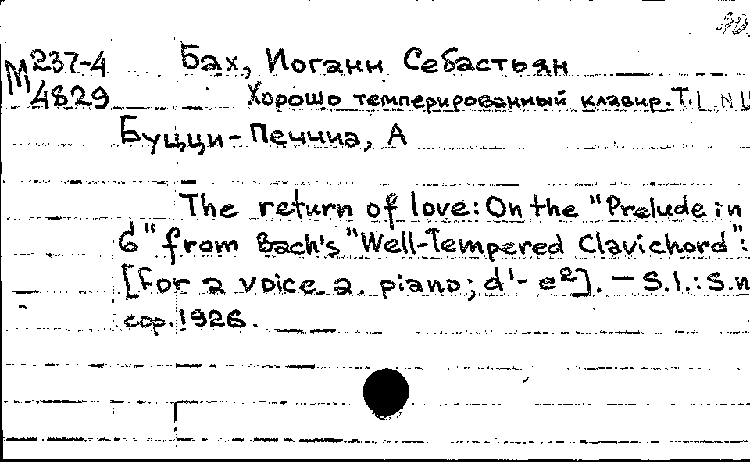 М 237-4 Бах, Иоганн Себастьян
4829 Хорошо темперированный клавир. Т.I. N
Буцци-Печчиа, А
The return of love: On the "Prelude in
G" from Bach's "Well-Tempered Clavichord":
[For a voice a. piano; d¹- e²]. — S.l.: S.n
cop. 1926.